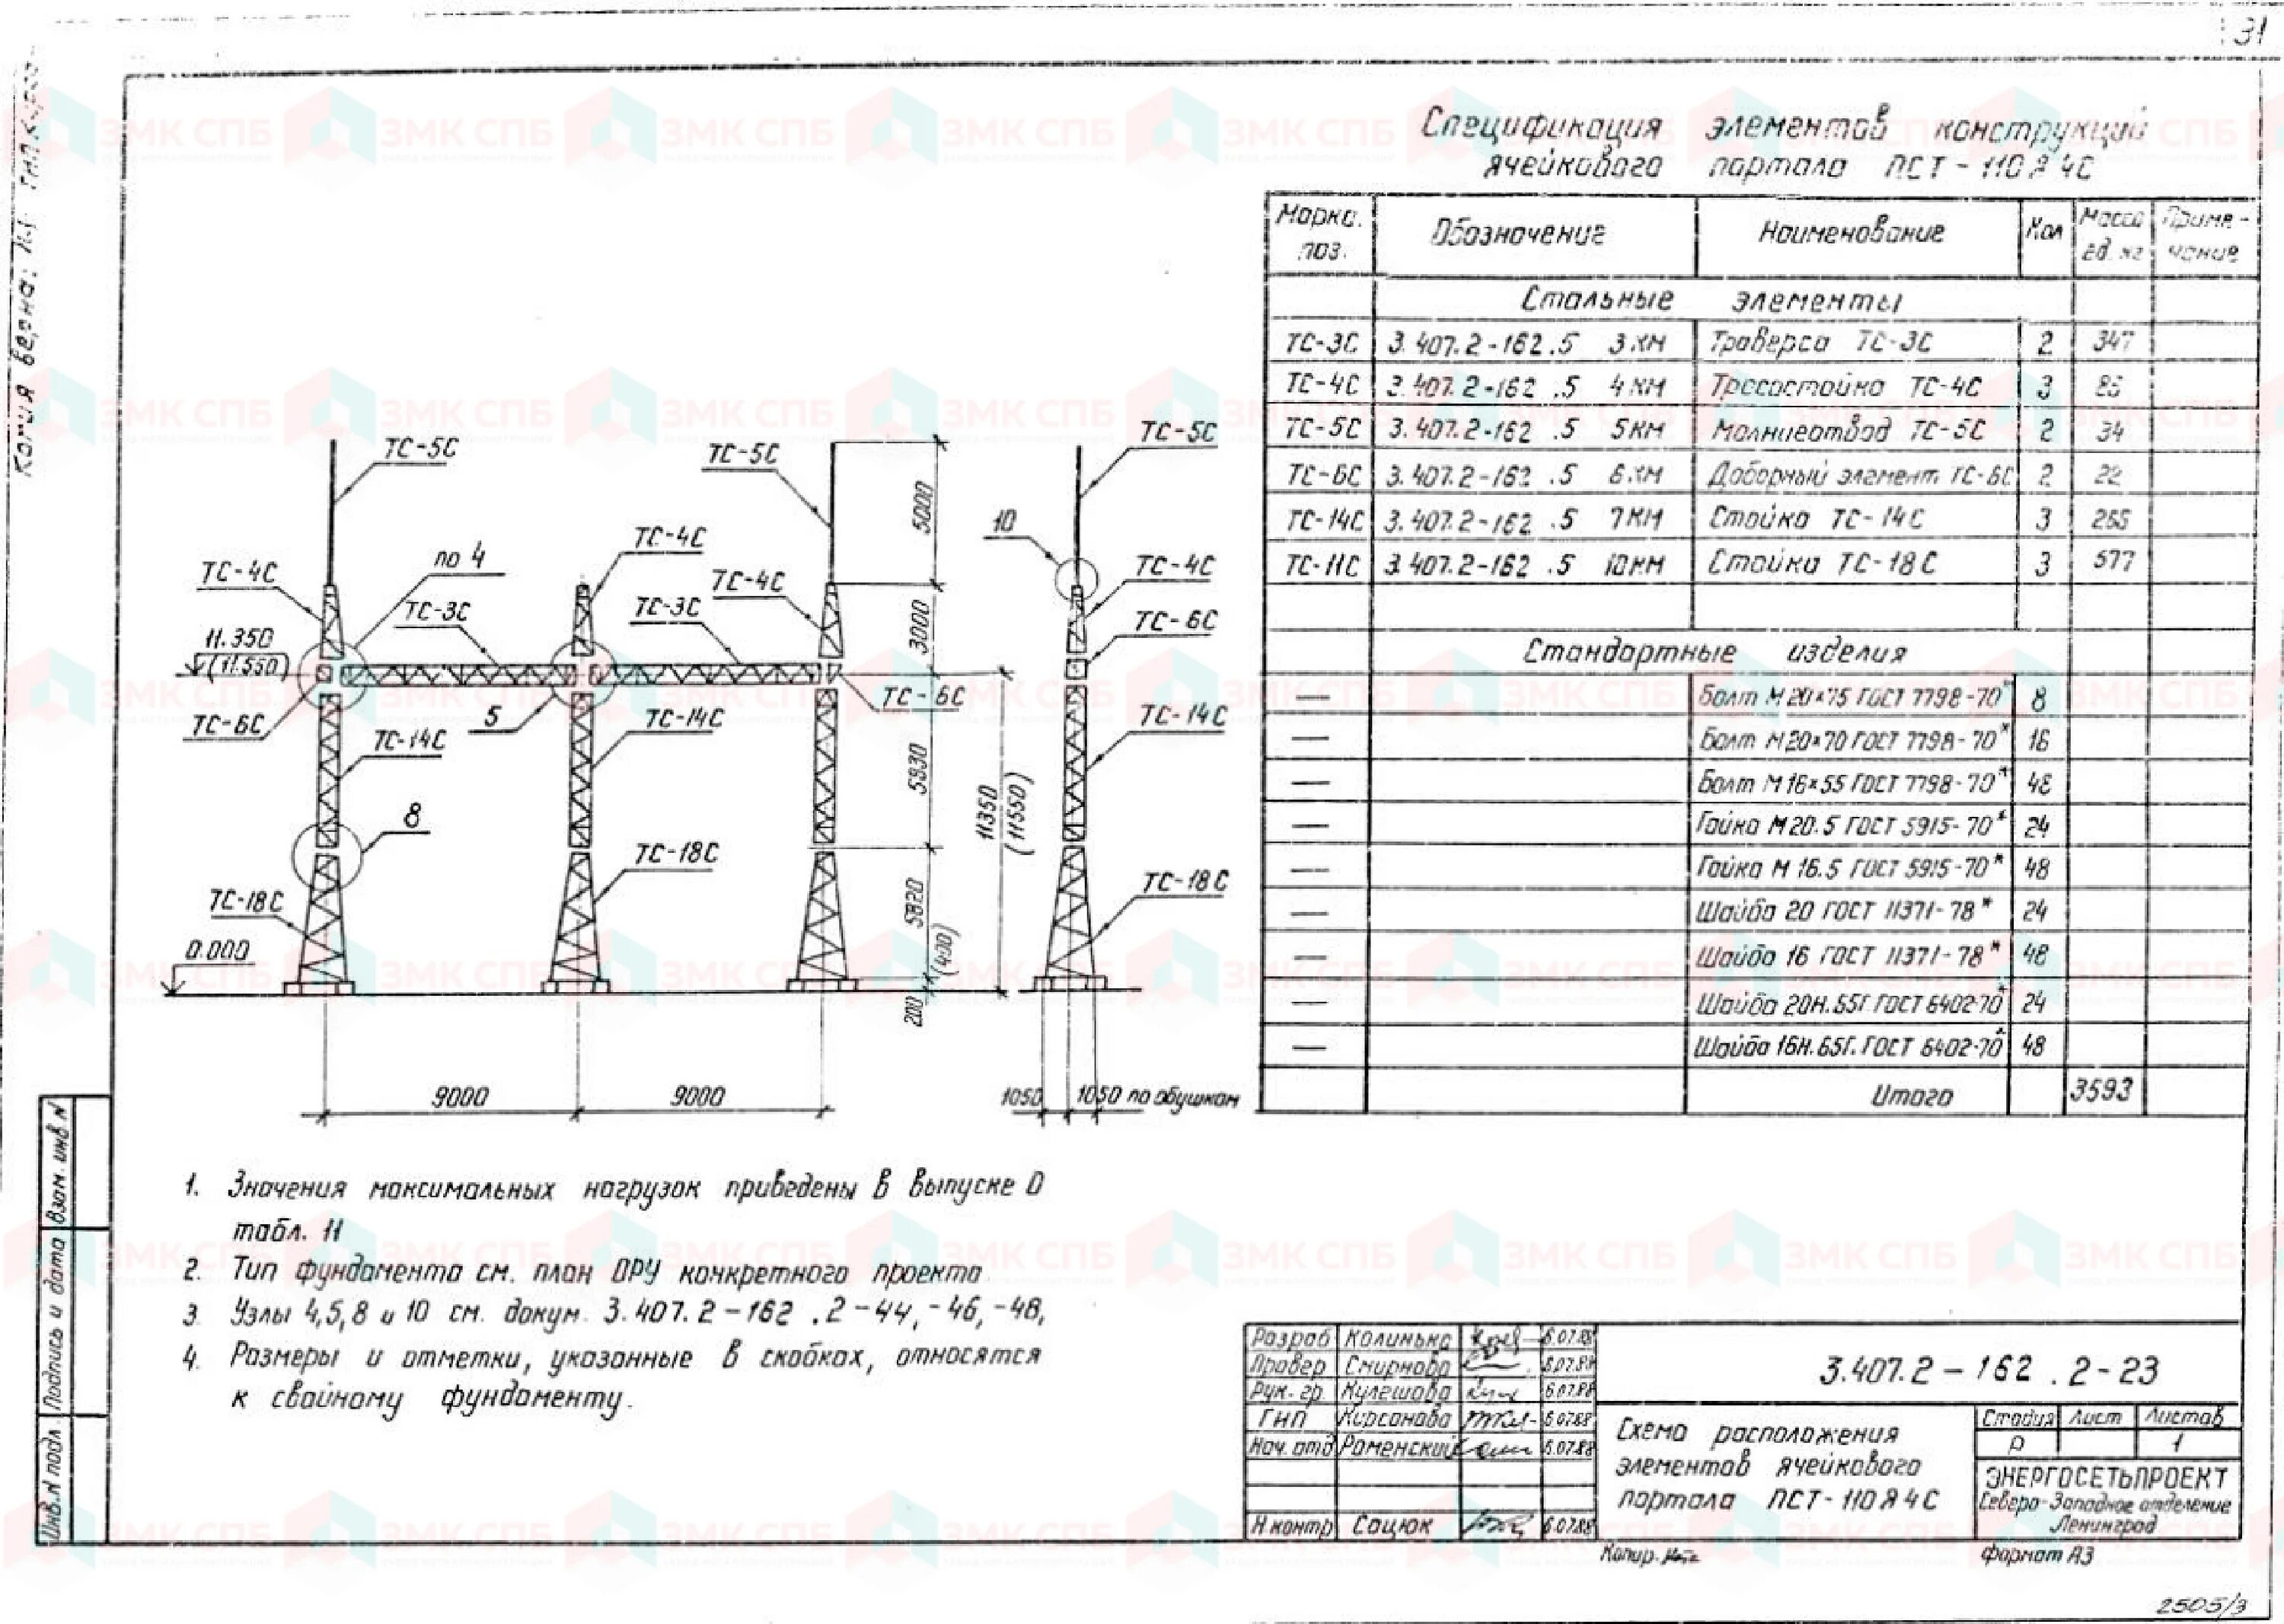 31
Копия верна:
Спецификация элементов конструкций
ячейкового портала ПСТ-110Я4С
Марка. поз. Обозначение Наименование Кол Масса ед. кг Приме-чание
Стальные элементы
ТС-3С 3.407.2-162.5 3 КМ Траверса ТС-3С 2 347
ТС-4С 3.407.2-162.5 4 КМ Тросостойка ТС-4С 3
ТС-5С 3.407.2-162.5 5КМ Молниеотвод ТС-5С 2 34
ТС-6С 3.407.2-162.5 6 КМ Доборный элемент ТС-6С 2 22
ТС-14С 3.407.2-162.5 7КМ Стойка ТС-14С 3 265
ТС-11С 3.407.2-162.5 10КМ Стойка ТС-18С 3 577
Стандартные изделия
— Болт М20×75 ГОСТ 7798-70* 8
— Болт М20×70 ГОСТ 7798-70* 16
— Болт М16×55 ГОСТ 7798-70* 48
— Гайка М20.5 ГОСТ 5915-70* 24
— Гайка М 16.5 ГОСТ 5915-70* 48
— Шайба 20 ГОСТ 11371-78* 24
— Шайба 16 ГОСТ 11371-78* 48
— Шайба 20Н.65Г ГОСТ 6402-70* 24
— Шайба 16Н.65Г. ГОСТ 6402-70* 48
Итого 3593
ТС-5С
ТС-5С
ТС-5С
5000
10
ТС-4С
по 4
ТС-4С
ТС-4С
ТС-4С
ТС-3С
ТС-3С
3000
ТС-6С
11.350
(11.550)
ТС-6С
5
ТС-14С
ТС-6С
ТС-14С
ТС-14С
5930
11350
(11550)
8
ТС-18С
ТС-18С
ТС-18С
5820
(400)
0.000
200
9000
9000
1050
1050 по обушкам
1. Значения максимальных нагрузок приведены в выпуске 0
табл. 11
2. Тип фундамента см. план ОРУ конкретного проекта
3. Узлы 4,5,8 и 10 см. докум. 3.407.2-162.2-44,-46,-48,
4. Размеры и отметки, указанные в скобках, относятся
к свайному фундаменту.
Взам. инв. N
Подпись и дата
Инв. N подл.
Разраб Калинько 6.07.88
Провер Смирнова 6.07.88
Рук. гр Кулешова 6.07.88
ГНП Кирсанова 6.07.88
Нач. отд Раменский 6.07.88
Н контр Сацюк 6.07.88
3.407.2-162.2-23
Схема расположения
элементов ячейкового
портала ПСТ-110Я4С
Стадия Лист Листов
Р 1
ЭНЕРГОСЕТЬПРОЕКТ
Северо-Западное отделение
Ленинград
Копир.
формат А3
2505/3
ЗМК СПБ